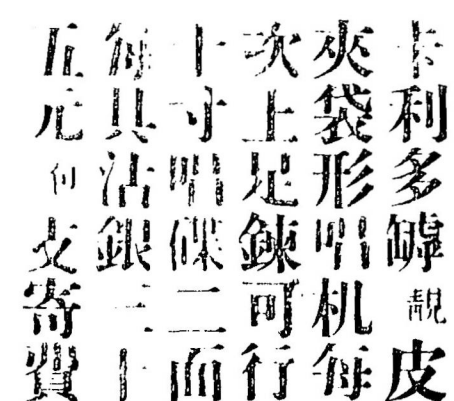 卡利多罅靚皮
夾袋形唱机每
次上足鍊可行
十寸唱碟二面
每具沽銀三十
五元支寄費